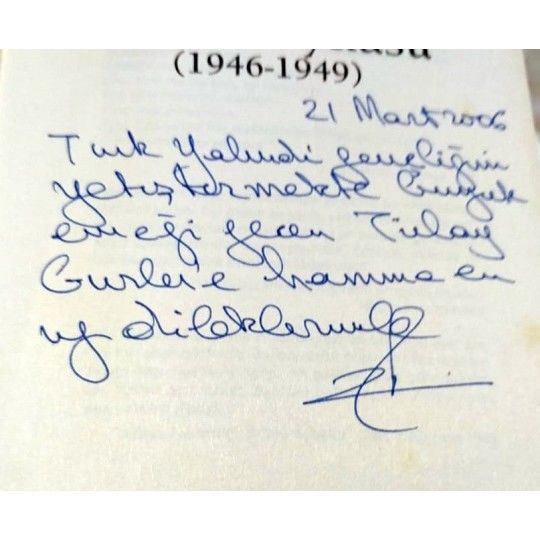 (1946-1949)
21 Mart 2006
Türk Yahudi gençliğinin
yetiştirmekte büyük
emeği geçen Tülay
Gürler'e hanıma en
iyi dileklerimle